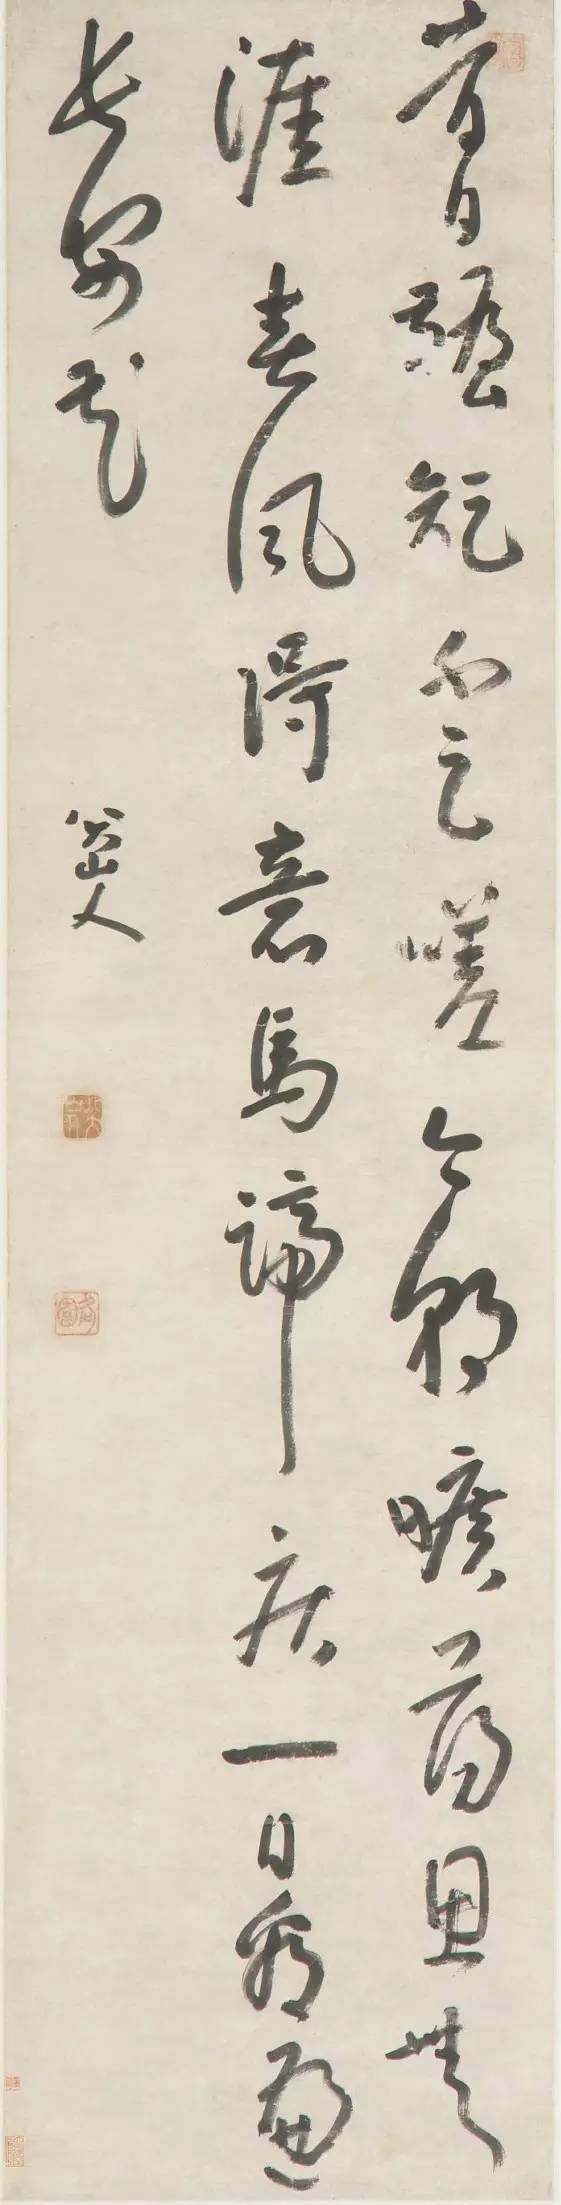 昔日不足嗟今朝曠蕩恩無
涯春風得意馬蹄疾一日看遍
長安花
八大山人